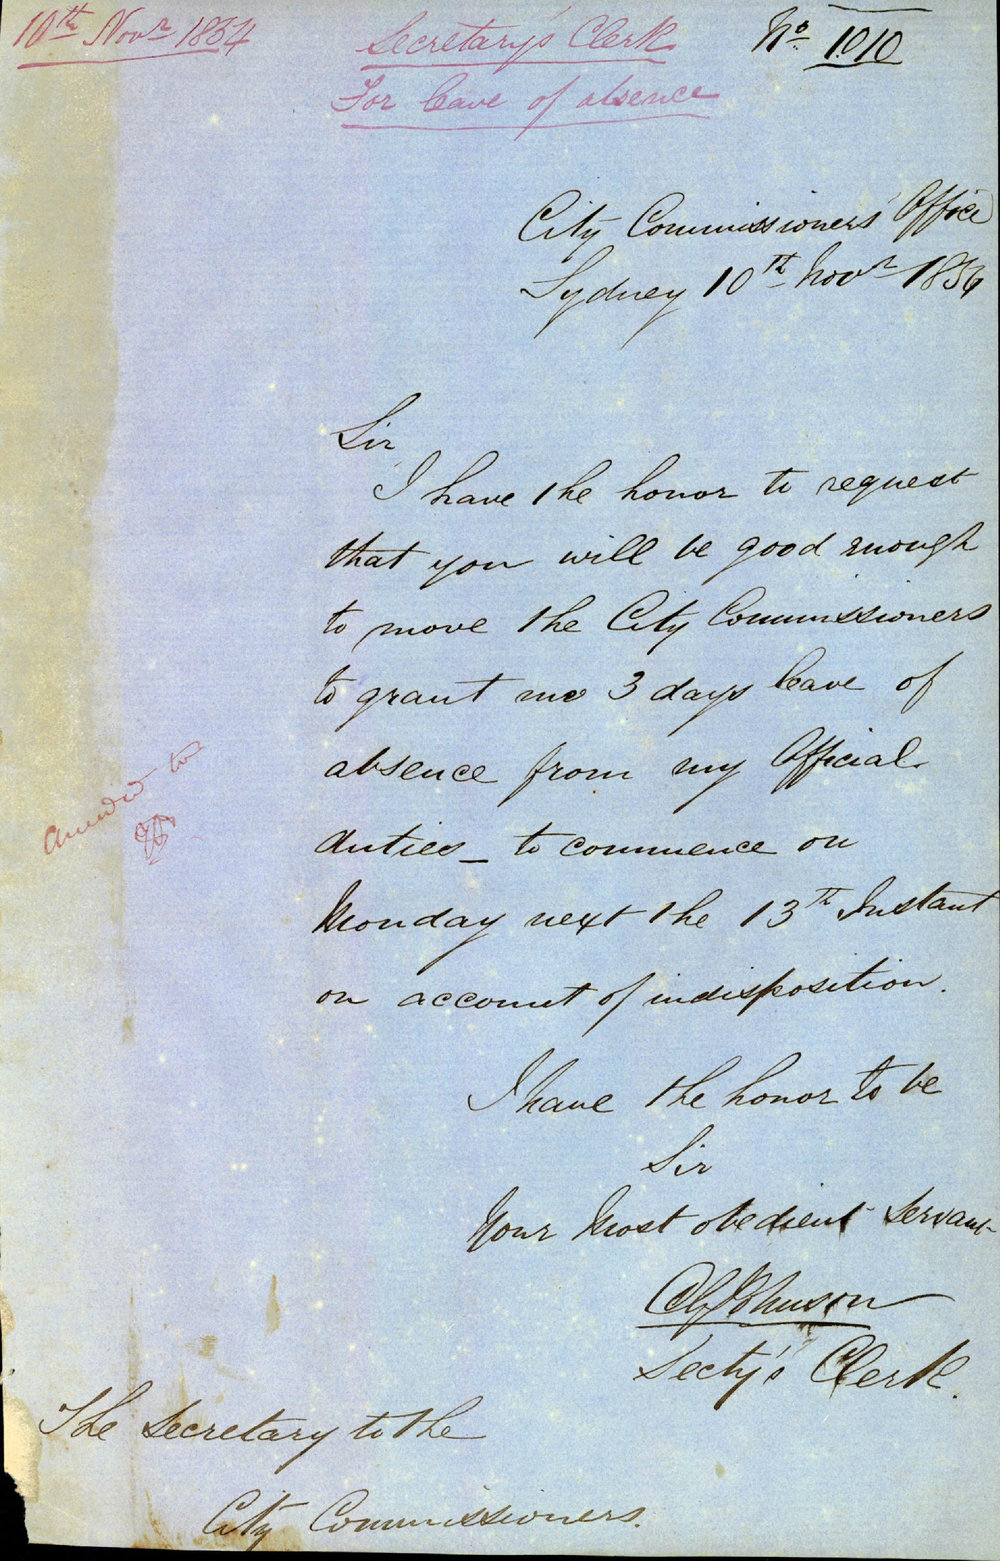 10th Novr 1854
Secretary's Clerk
No. 1010
For leave of absence
City Commissioners' Office
Sydney 10th Novr 1854
Sir
I have the honor to request
that you will be good enough
to move the City Commissioners
to grant me 3 days leave of
absence from my Official
duties _ to commence on
Monday next the 13th Instant
on account of indisposition.
I have the honor to be
Sir
Your Most obedient Servant
Johnson
Secty's Clerk.
The Secretary to the
City Commissioners.